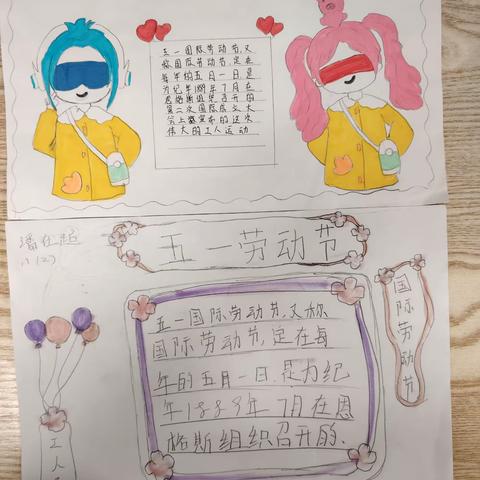 五一国际劳动节,又
称国际劳动节,定在
每年的五月一日是
为纪年1889年7月在
恩格斯组织召开的
第二次国际成立大
会上盛宣布的这次
伟大的工人运动
五一劳动节
国际劳动节
五一国际劳动节,又称
国际劳动节,定在每
年的五月一日.是为纪
年1889年7月在恩
格斯组织召开的.
工人